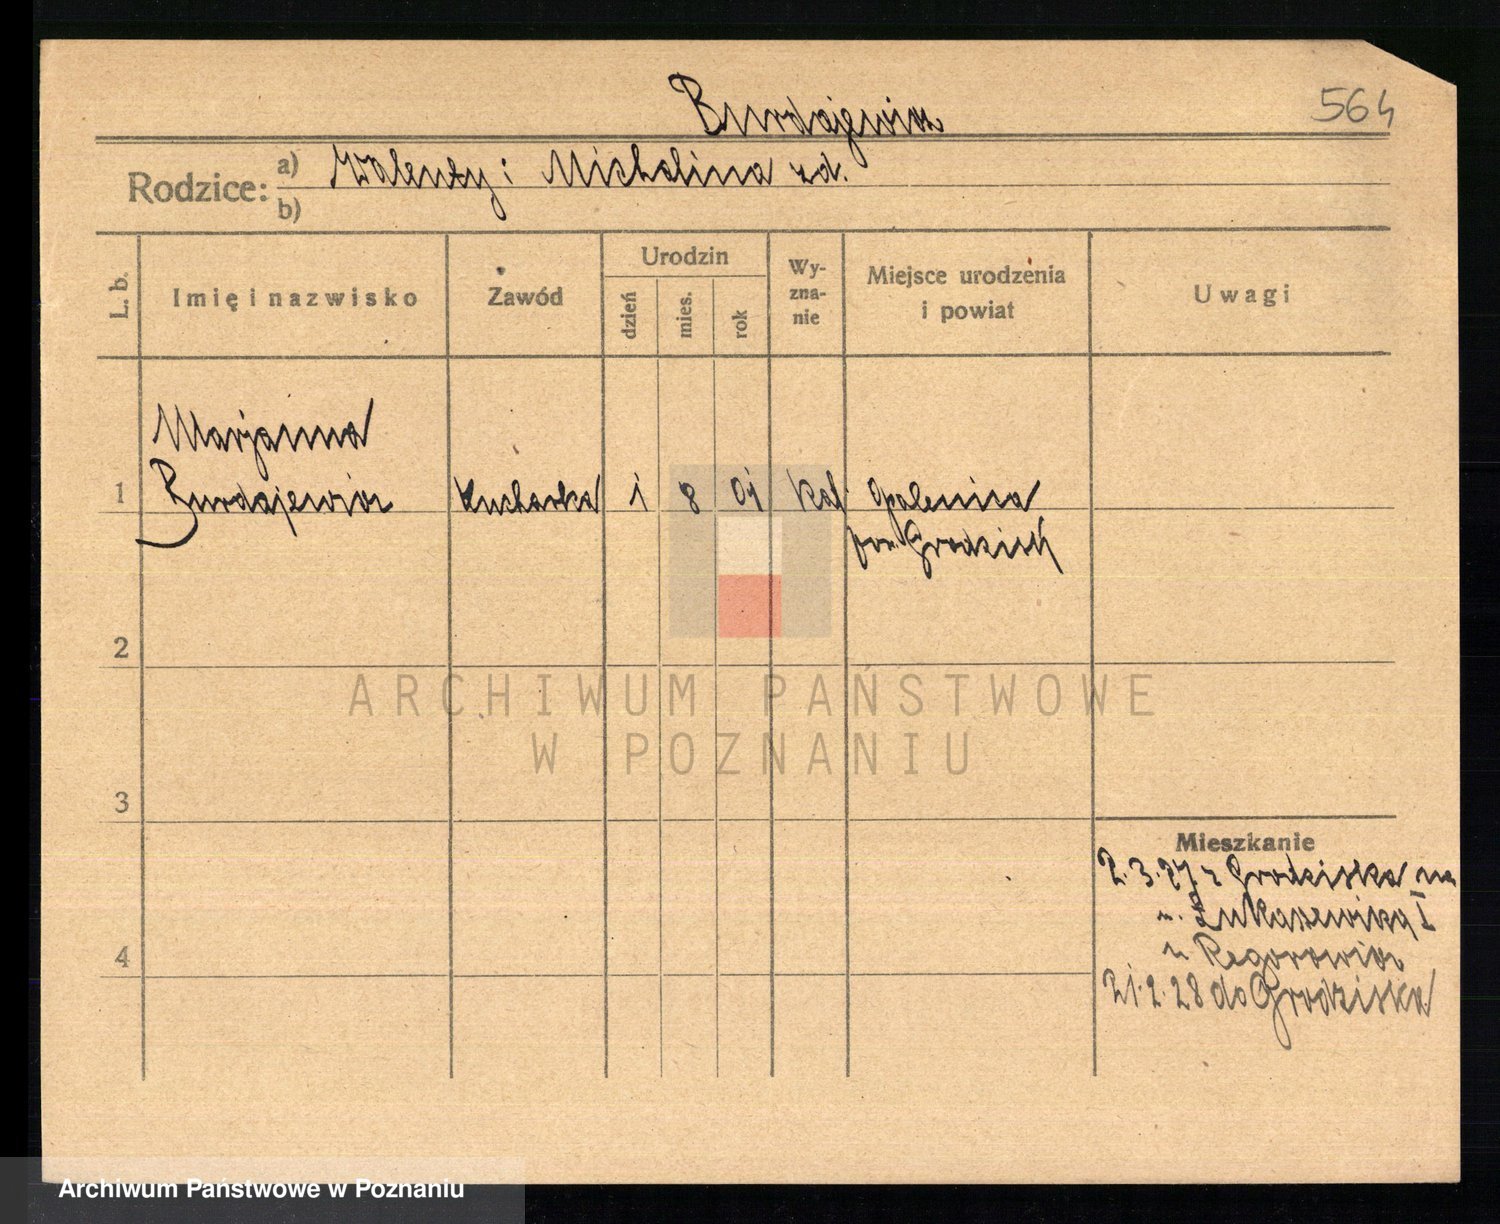 Burdajewicz
564
Rodzice: a) Walenty i Michalina zd.
b)
L. b.
Imię i nazwisko
Zawód
Urodzin
dzień
mies.
rok
Wy-
zna-
nie
Miejsce urodzenia
i powiat
Uwagi
Marjanna
1 Burdajewicz kucharka 1 8 01 kat Opalenica
pow. Grodzisk
2
3
4
Mieszkanie
2.3.27 z Grodziska na
u. Łukaszewicza I
u
21.2.28 do Grodziska
ARCHIWUM PAŃSTWOWE
W POZNANIU
Archiwum Państwowe w Poznaniu